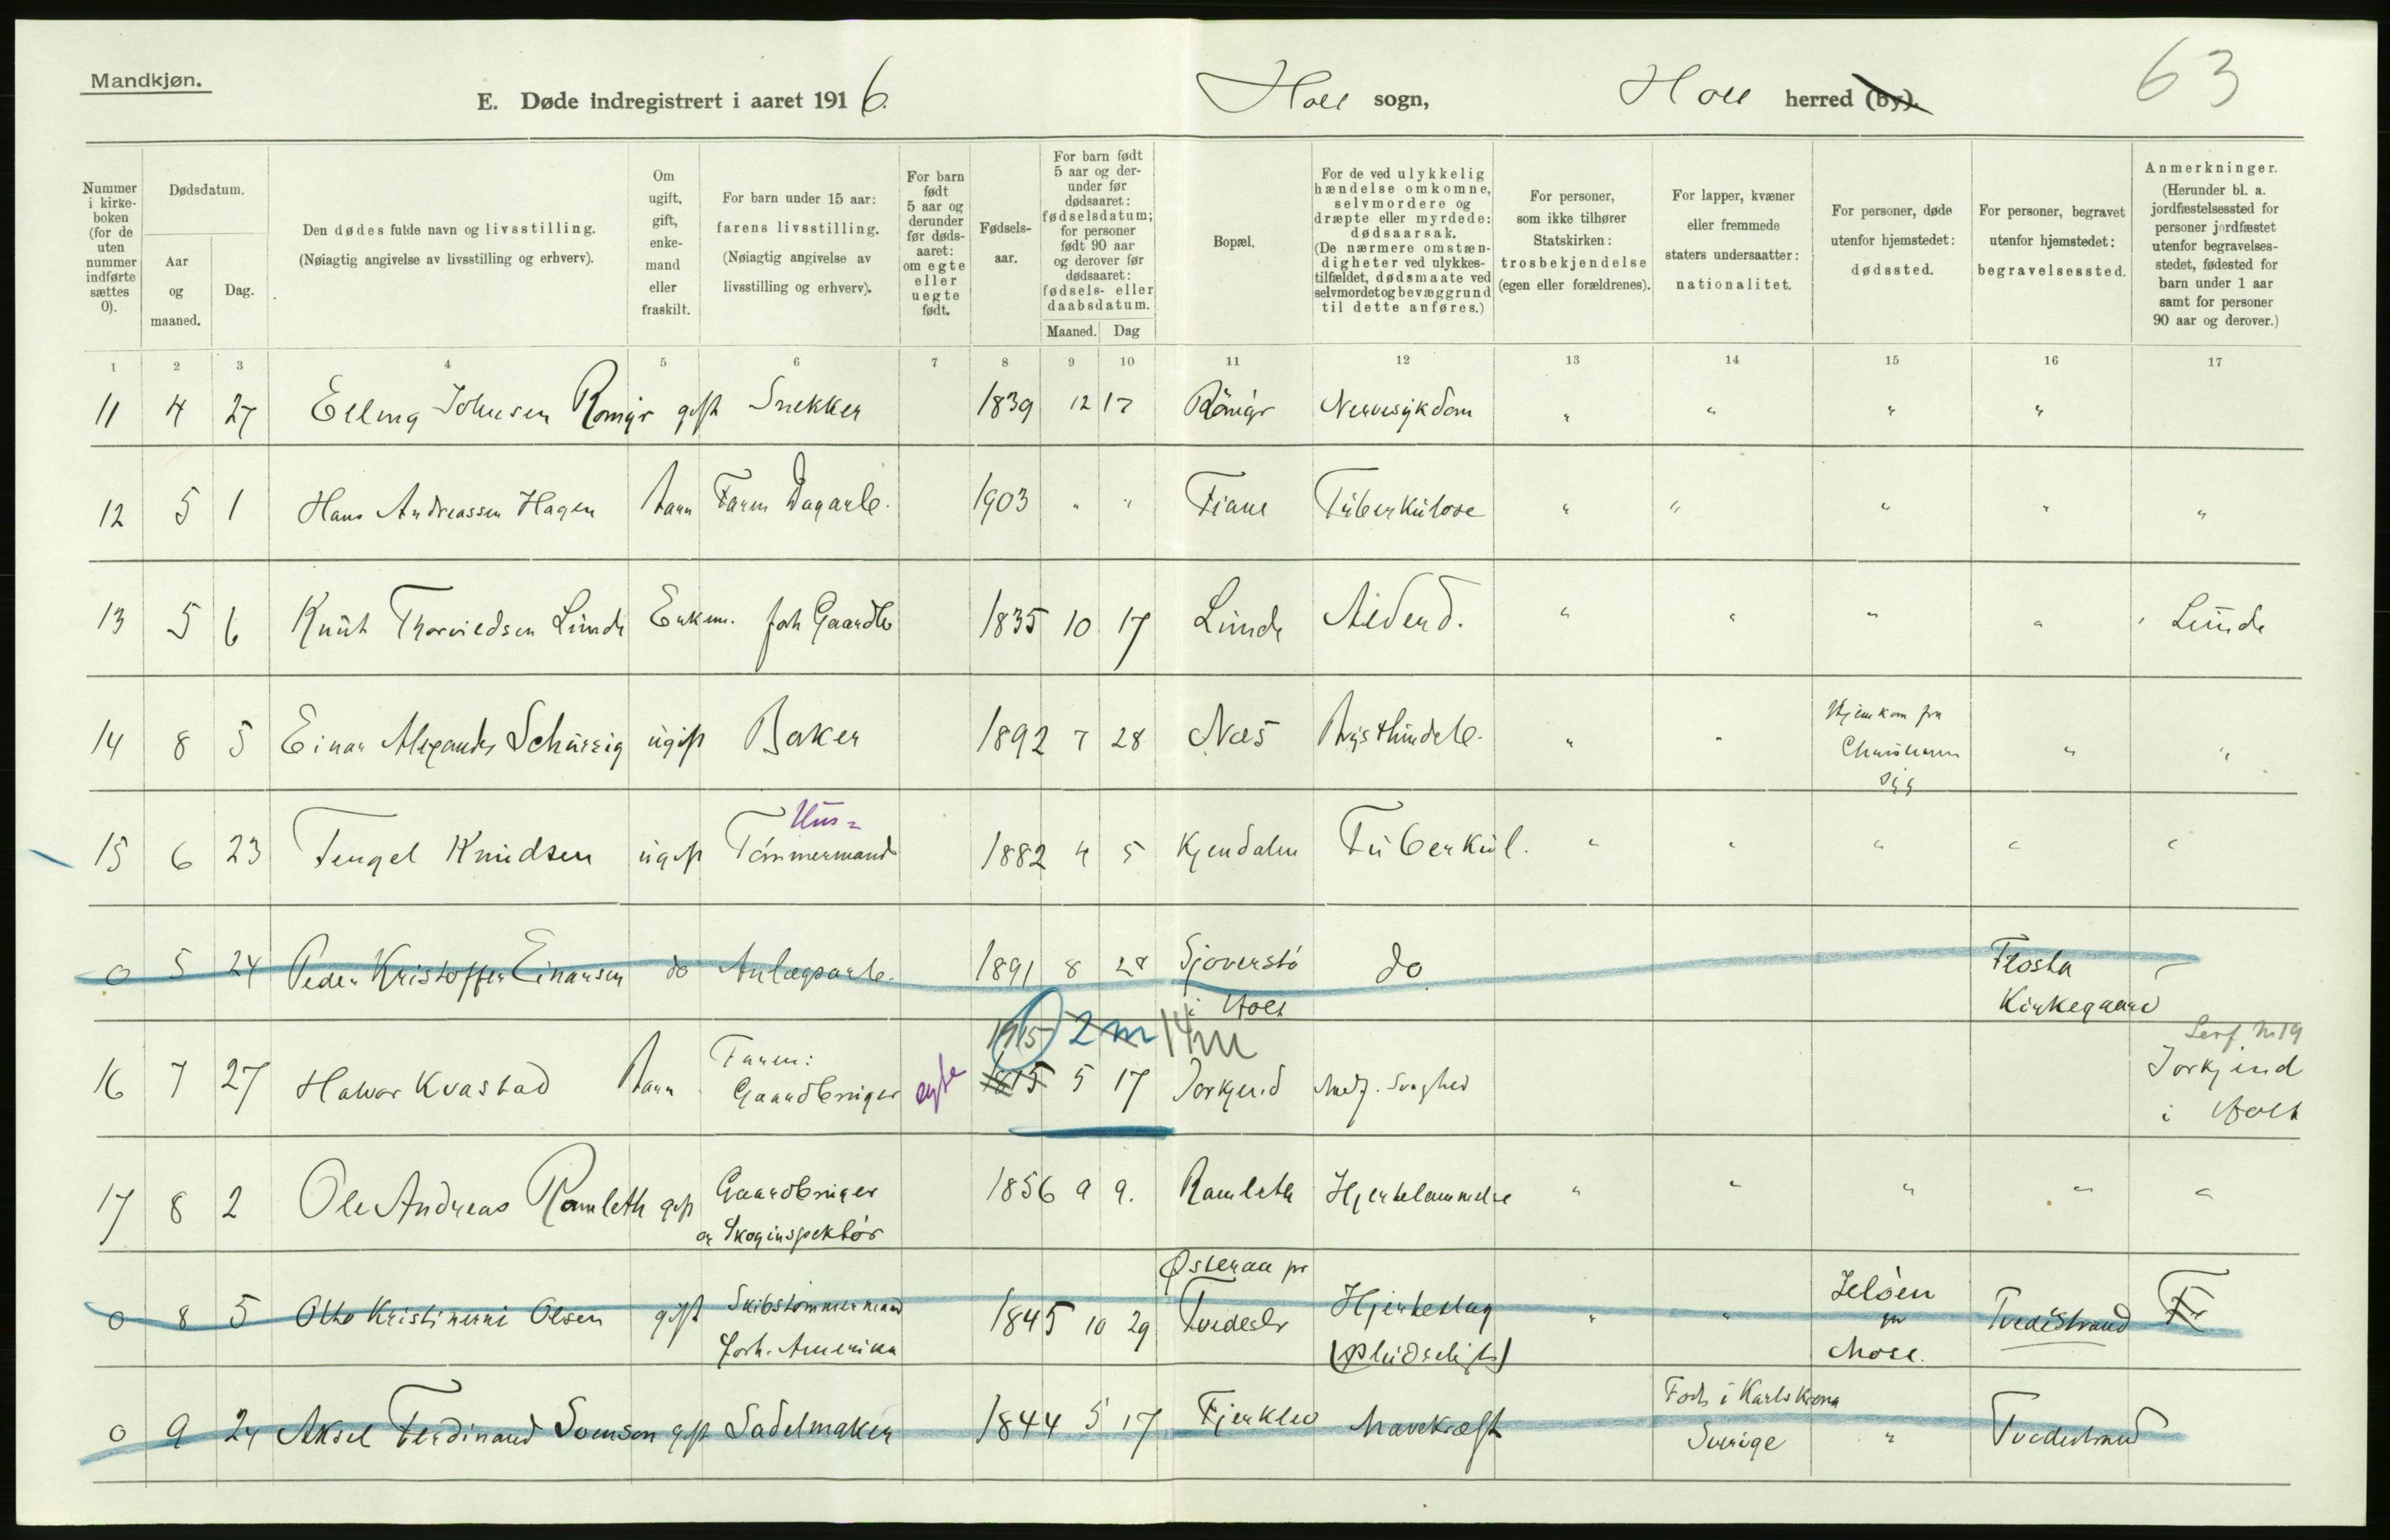 Mandkjøn.
E. Døde indregistrert i aaret 1916.
Holt sogn,
Holt herred (by).
63
Nummer i kirke-boken (for de uten nummer indførte sættes 0).
Dødsdatum.
Aar og maaned.
Dag.
Den dødes fulde navn og livsstilling.
(Nøiagtig angivelse av livsstilling og erhverv).
Om ugift, gift, enke-mand eller fraskilt.
For barn under 15 aar: farens livsstilling.
(Nøiagtig angivelse av livsstilling og erhverv).
For barn født 5 aar og derunder før døds-aaret: om egte eller uegte født.
Fødsels-aar.
For barn født 5 aar og der-under før dødsaaret: fødselsdatum; for personer født 90 aar og derover før dødsaaret: fødsels- eller daabsdatum.
Maaned. Dag
Bopæl.
For de ved ulykkelig hændelse omkomne, selvmordere og dræpte eller myrdede: dødsaarsak.
(De nærmere omstæn-digheter ved ulykkes-tilfældet, dødsmaate ved selvmordet og bevæggrund til dette anføres.)
For personer, som ikke tilhører Statskirken: trosbekjendelse (egen eller forældrenes).
For lapper, kvæner eller fremmede staters undersaatter: nationalitet.
For personer, døde utenfor hjemstedet: dødssted.
For personer, begravet utenfor hjemstedet: begravelsessted.
Anmerkninger.
(Herunder bl. a. jordfæstelsessted for personer jordfæstet utenfor begravelses-stedet, fødested for barn under 1 aar samt for personer 90 aar og derover.)
1 2 3 4 5 6 7 8 9 10 11 12 13 14 15 16 17
11 4 27 Elling Johnsen gift Snekker 1839 12 17 Nervesykdom " " " "
12 5 1 Hans Andreassen Hagen barn Faren Dagarb. 1903 " " Fiane Tuberkulose " " " " "
13 5 6 Knut Lunde Enkem. forh Gaardb 1835 10 17 Lunde Alderd. " " " " Lunde
14 8 5 Einar Alexander ugift Baker 1892 7 28 Næs Brysthindeb. " " Hjemkom fra
" "
syg
Hus=
15 6 23 Tengel Knudsen ugift Tømmermand 1882 4 5 Kjendalen Tuberkul. " " " " "
0 5 24 Peder Kristoffer Einarsen do Anlægsarb. 1891 8 28 Sjøverstø do. Flosta
i Holt Kirkegaard
1915 2 m 14 m
Faren: No 19
16 7 27 Halvor Kvastad barn Gaardbruger egte 1815 5 17 Medf. Svaghed
i Holt
17 8 2 Ole Andreas Ramleth gift Gaardbruger 1856 9 9. Ramleth Hjertelammelse " " " " "
og Skoginspektør
Østeraa pr
0 8 5 Otto Olsen gift Skibstømmermand 1845 10 29 Tvedestr Hjerteslag " " Jeløen Tvedestrand
forh. Amerika (pludseligt) pr
Moss.
Født i Karlskrona
0 9 24 Aksel Ferdinand Svenson gift Sadelmaker 1844 5 17 Fjerklev Mavekræft Sverige " Tvedestrand